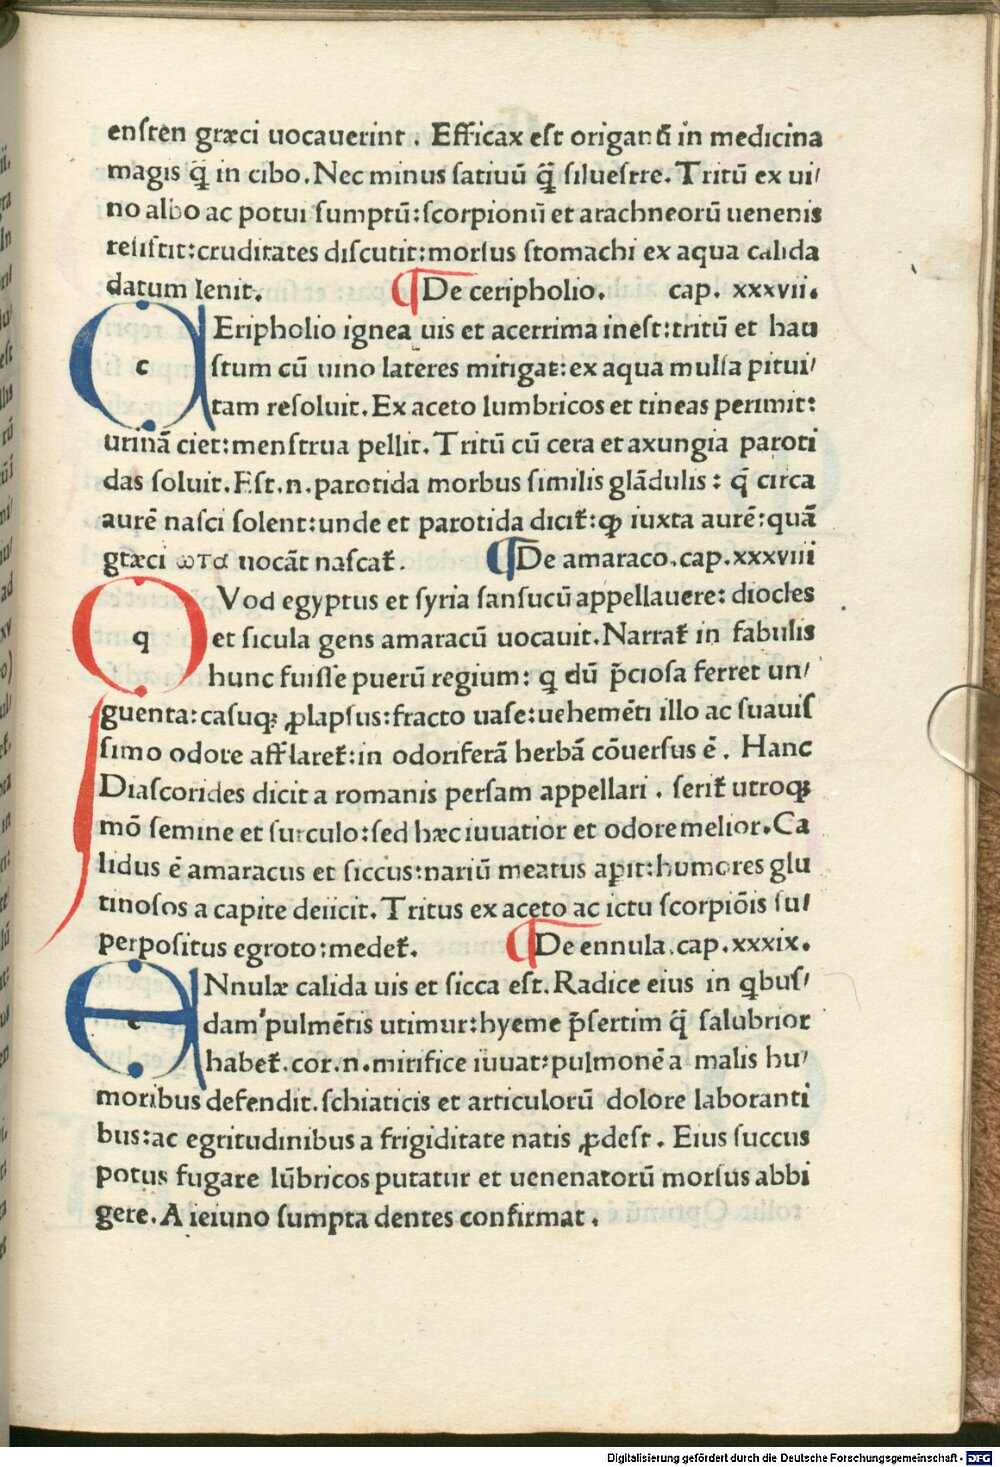 enſten græci uocauerint . Efficax eſt origanū in medicina
magis q̄ in cibo. Nec minus ſatiuū q̄ ſilueſtre. Tritū ex ui/
no albo ac potui ſumptū: ſcorpionū et arachneorū uenenis
reſiſtit: cruditates diſcutit: morſus ſtomachi ex aqua calida
datum lenit. ¶De ceripholio. cap. xxxvii.
c Eripholio ignea uis et acerrima ineſt: tritū et hau
ſtum cū uino lateres mitigat: ex aqua mulſa pitui/
tam reſoluit. Ex aceto lumbricos et tineas perimit:
urinā ciet: menſtrua pellit. Tritū cū cera et axungia paroti
das ſoluit. Eſt. n. parotida morbus ſimilis glādulis : q̄ circa
aurē naſci ſolent: unde et parotida dicit᷑: ꝙ iuxta aurē: quā
græci ωτα uocāt naſcat᷑. ¶De amaraco. cap. xxxviii
q Vod egyptus et ſyria ſanſucū appellauere: diocles
et ſicula gens amaracū uocauit. Narrat᷑ in fabulis
hunc fuiſſe puerū regium: q dū p̄cioſa ferret un/
guenta: caſuqꝫ ꝓlapſus: fracto uaſe: uehemēti illo ac ſuauiſ
ſimo odore afflaret᷑: in odoriferā herbā cōuerſus ē . Hanc
Diaſcorides dicit a romanis perſam appellari . ſerit᷑ utroqꝫ
mō ſemine et ſurculo: ſed hæc iuuatior et odore melior. Ca
lidus ē amaracus et ſiccus: nariū meatus aꝑit: humores glu
tinoſos a capite deiicit. Tritus ex aceto ac ictu ſcorpiōis ſu/
perpoſitus egroto: medet᷑. ¶De ennula. cap. xxxix.
e Nnulæ calida uis et ſicca eſt. Radice eius in qbuſ/
dam pulmētis utimur: hyeme p̄ſertim q̄ ſalubrior
habet᷑. cor. n. mirifice iuuat: pulmonē a malis hu/
moribus defendit. ſchiaticis et articulorū dolore laboranti
bus: ac egritudinibus a frigiditate natis ꝓdeſt . Eius ſuccus
potus fugare lūbricos putatur et uenenatorū morſus abbi
gere. A ieiuno ſumpta dentes confirmat .
Digitalisierung gefördert durch die Deutsche Forschungsgemeinschaft - DFG